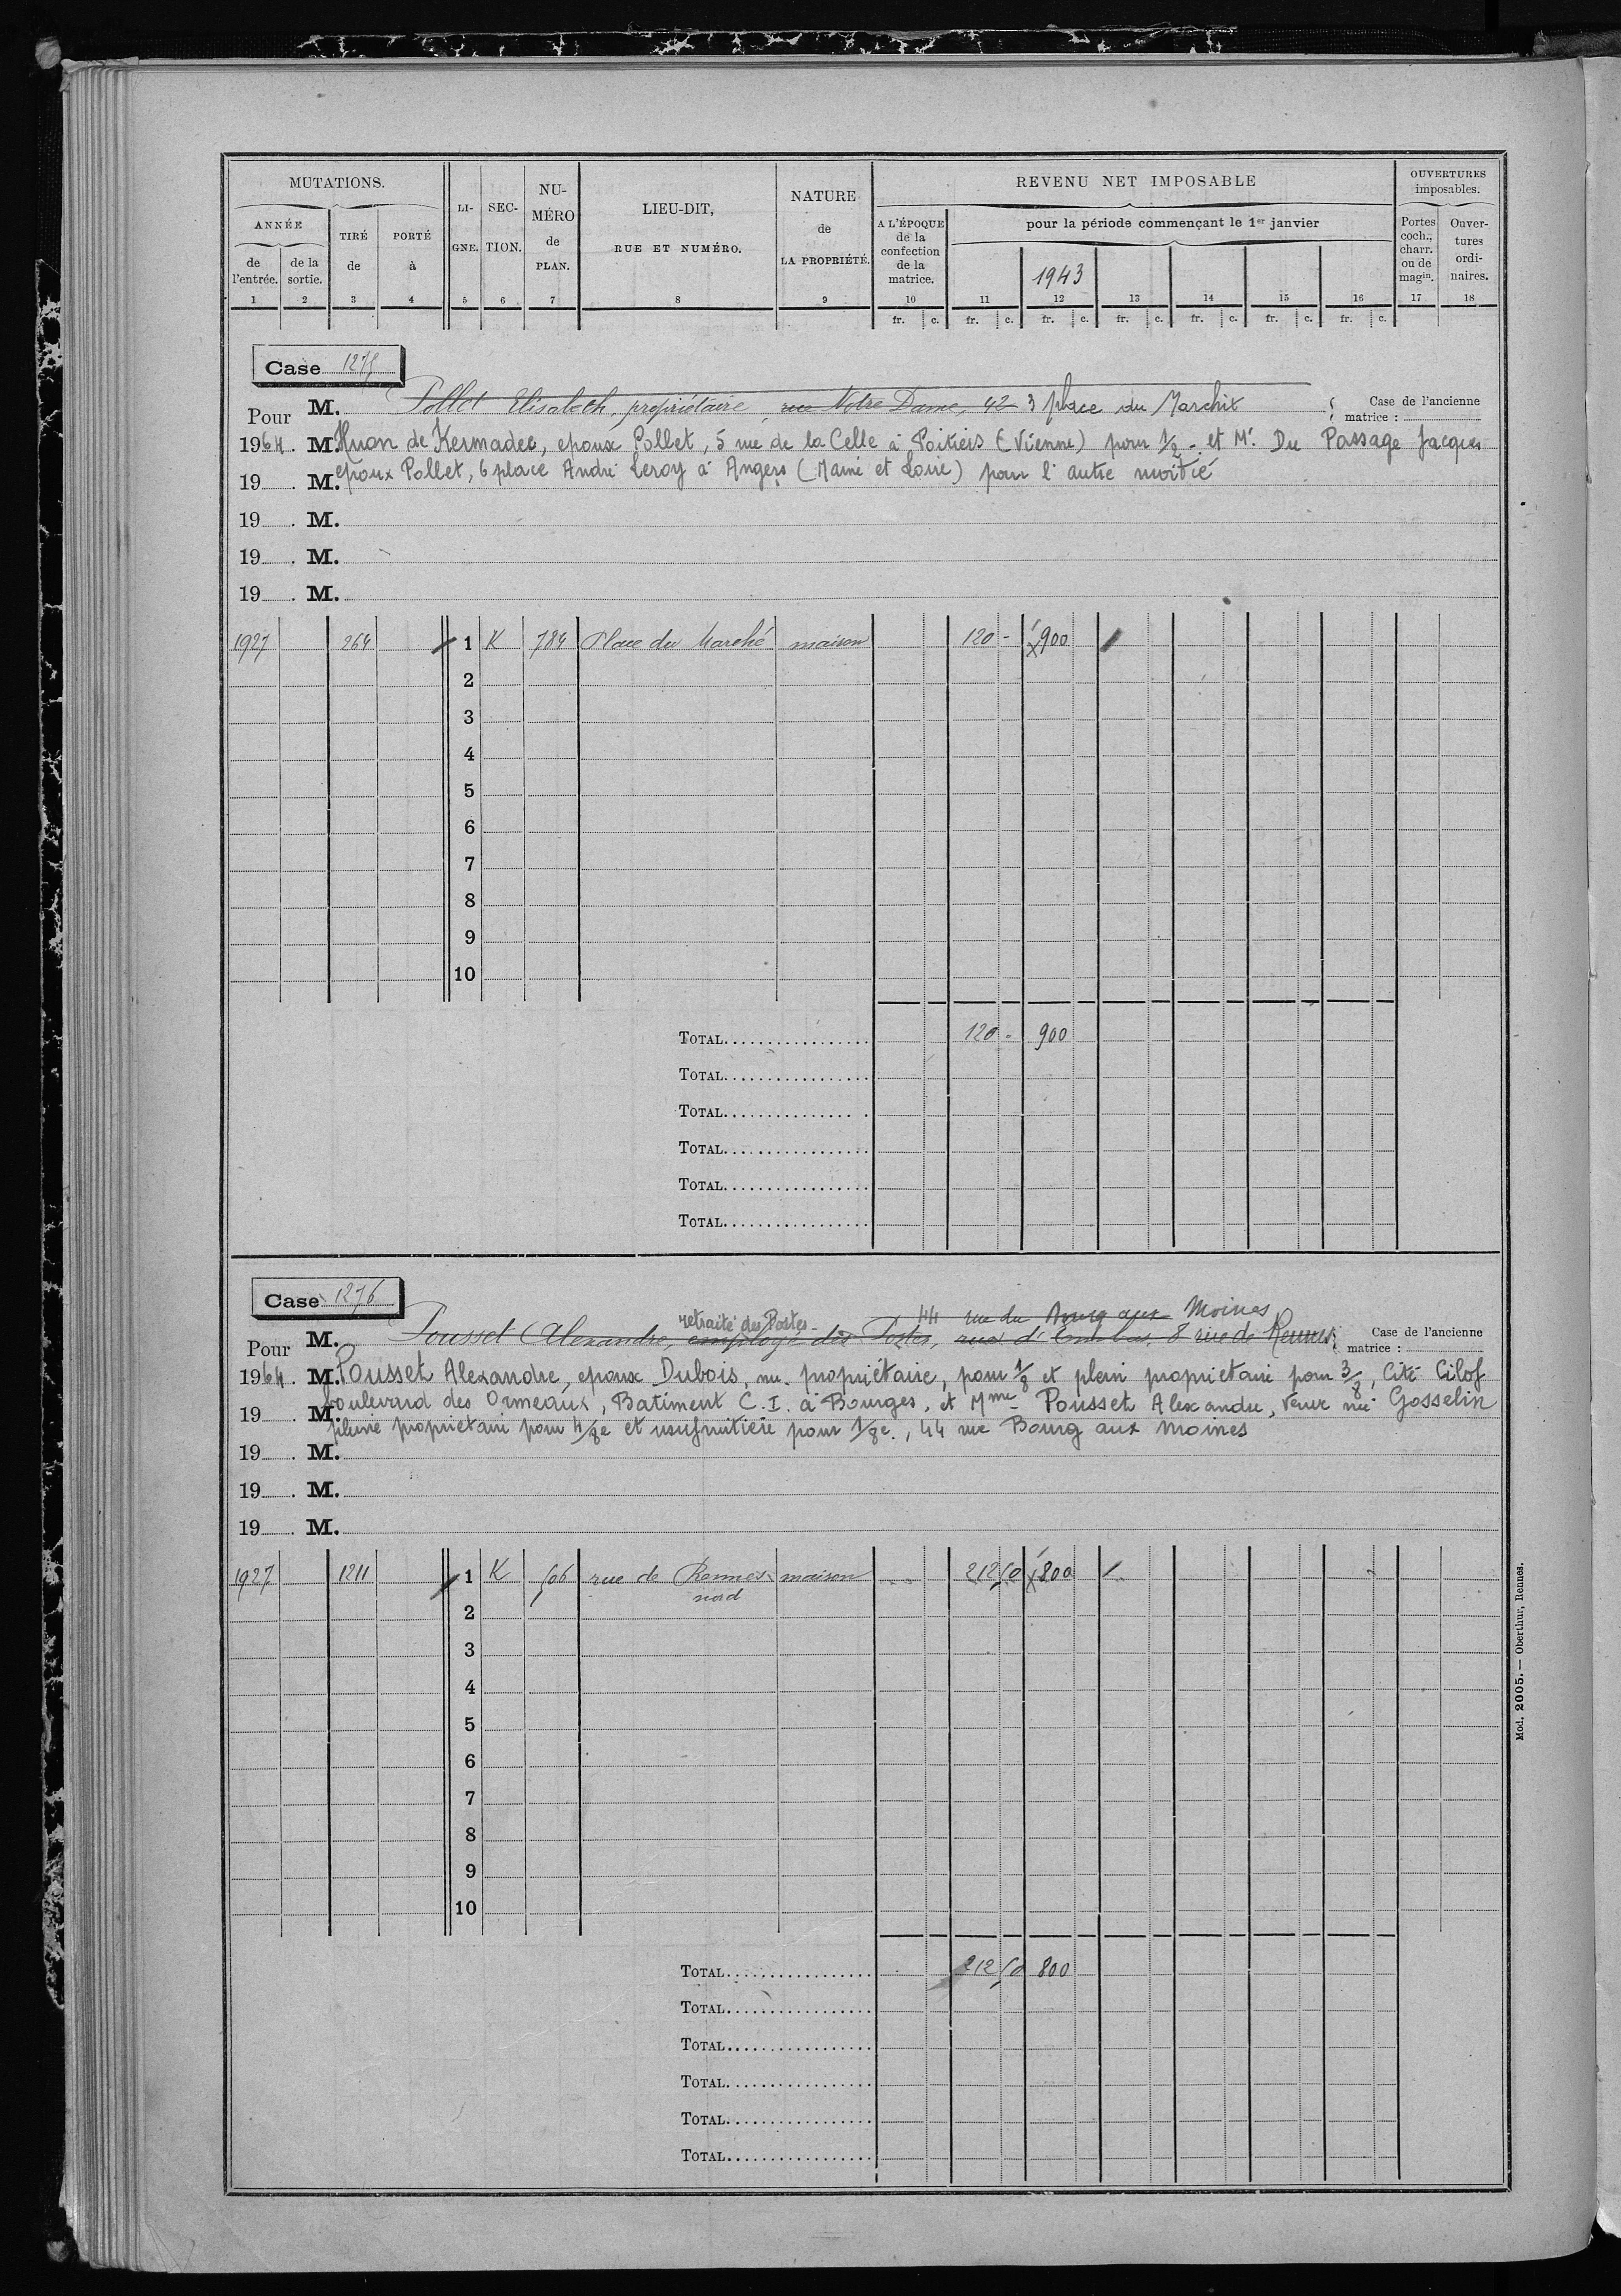 MUTATIONS.
ANNÉE
de l'entrée.
de la sortie.
TIRÉ de
PORTÉ à
LI-GNE.
SEC-TION.
NU-MÉRO de PLAN.
LIEU-DIT, RUE ET NUMÉRO.
NATURE de LA PROPRIÉTÉ.
REVENU NET IMPOSABLE
A L'ÉPOQUE de la confection de la matrice.
pour la période commençant le 1er janvier
1943
OUVERTURES imposables.
Portes coch., charr. ou de magin.
Ouver-tures ordi-naires.
1 2 3 4 5 6 7 8 9 10 11 12 13 14 15 16 17 18
fr. c. fr. c. fr. c. fr. c. fr. c. fr. c. fr. c.
Case 1275
Pour M. Pollet Elisabeth, propriétaire, rue Notre Dame, 42 3 place du Marchix
Case de l'ancienne matrice :
1964. M. Huon de Kermadec, epoux Pollet, 5 rue de la Celle à Poitiers (Vienne) pour 1/2 - et Mr. Du Passage Jacques
19 . M. epoux Pollet, 6 place André Leroy à Angers (Maine et Loire) pour l'autre moitié
19 . M.
19 . M.
19 . M.
1927 264 1 K 784 Place du Marché maison 120 - 900
2
3
4
5
6
7
8
9
10
TOTAL 120 - 900
TOTAL
TOTAL
TOTAL
TOTAL
TOTAL
Case 1276
retraité des Postes - 44 rue du Bourg aux Moines
Pour M. Pousset Alexandre, employé des Postes, rue d' 8 rue de Rennes
Case de l'ancienne matrice :
1964. M. Pousset Alexandre, epoux Dubois, nu-propriétaire, pour 1/8 et plein proprietaire pour 3/8, Cité Cilof
19 . M. boulevard des Ormeaux, Batiment C.I. à Bourges, et Mme Pousset Alexandre, veuve née Gosselin
pleine proprietaire pour 4/8e et usufruitière pour 1/8e., 44 rue Bourg aux moines
19 . M.
19 . M.
19 . M.
1927 1211 1 K 506 rue de Rennes maison 212 50 800
nord
2
3
4
5
6
7
8
9
10
TOTAL 212 50 800
TOTAL
TOTAL
TOTAL
TOTAL
TOTAL
Mod. 2005. — Oberthur, Rennes.